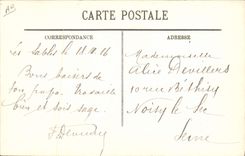 CARTE POSTALE
CORRESPONDANCE
ADRESSE
Les Sables le 18.9.16
Bons baisers de
ton papa. Travaille
bien et sois sage.
Mademoiselle
Alice Devillers
10 rue Béthisy
Noisy le Sec
Seine